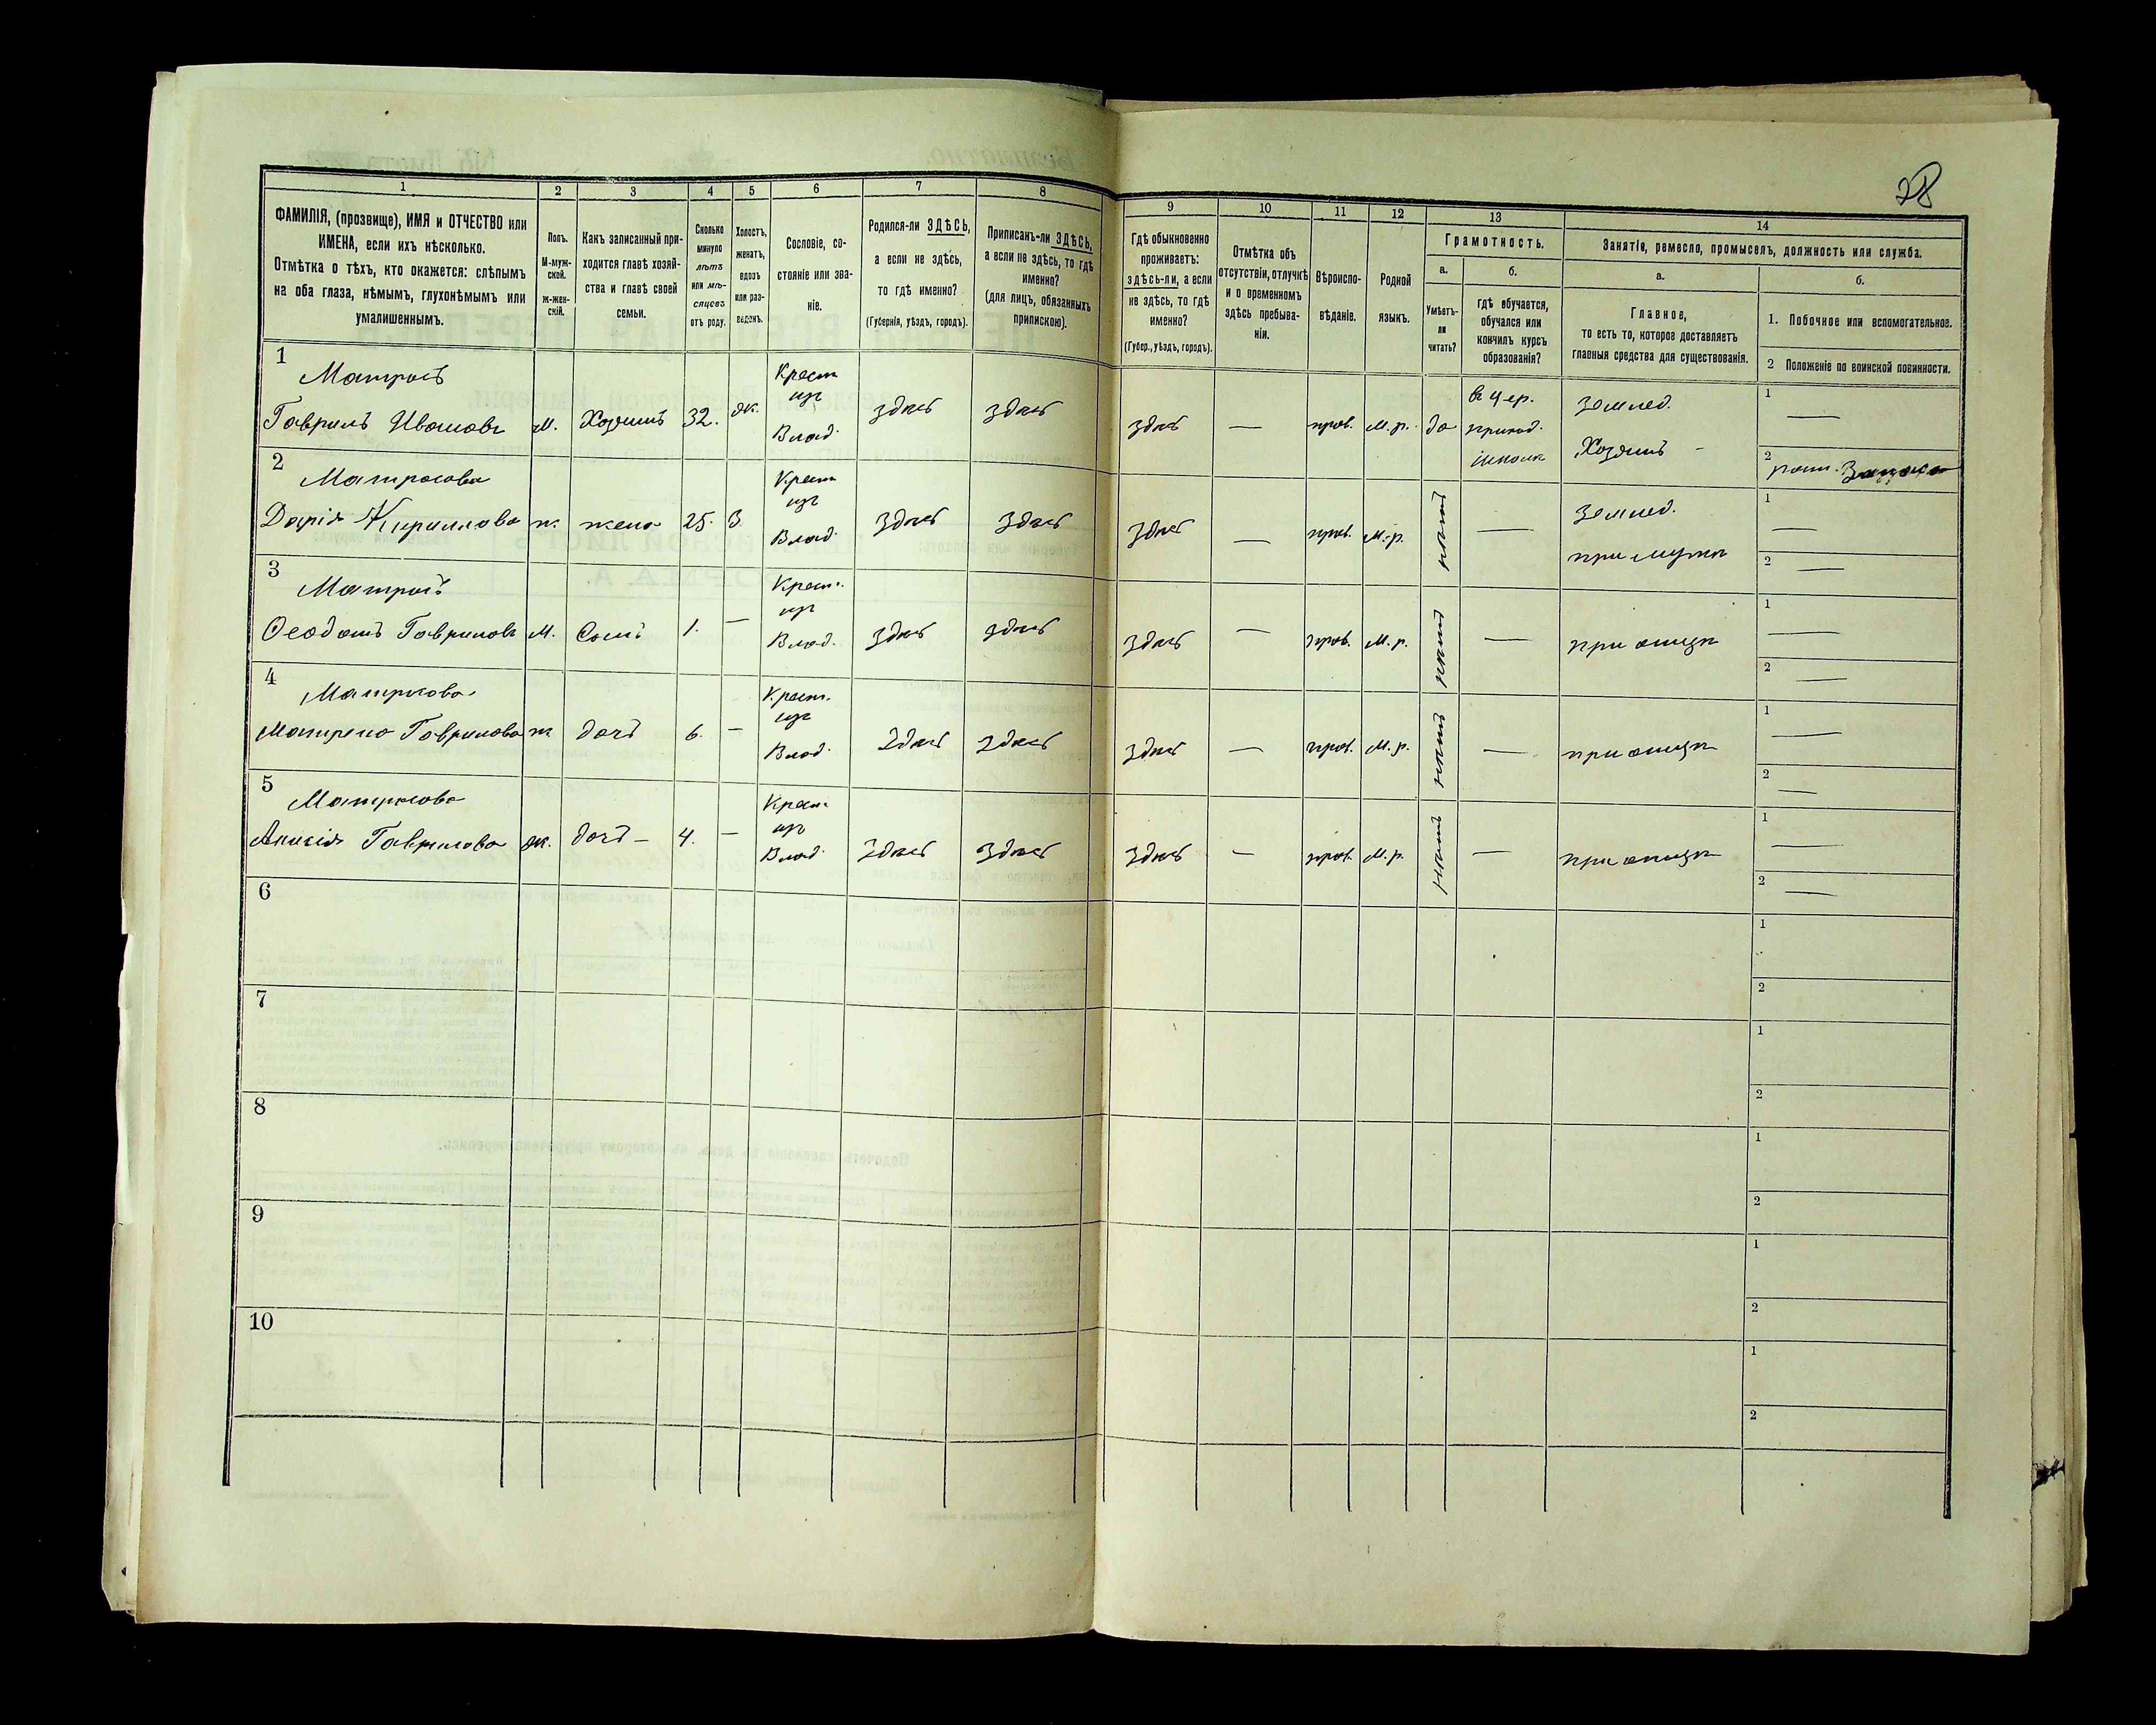 28
1 2 3 4 5 6 7 8 9 10 11 12 13 14
ФАМИЛІЯ, (прозвище), ИМЯ и ОТЧЕСТВО или
ИМЕНА, если ихъ нѣсколько.
Отмѣтка о тѣхъ, кто окажется: слѣпымъ
на оба глаза, нѣмымъ, глухонѣмымъ или
умалишеннымъ.
Полъ.
М-муж-
ской.
ж-жен-
скій.
Какъ записанный при-
ходится главѣ хозяй-
ства и главѣ своей
семьи.
Сколько
минуло
лѣтъ
или мѣ-
сяцевъ
отъ роду.
Холостъ,
женатъ,
вдовъ
или раз-
веденъ.
Сословіе, со-
стояніе или зва-
ніе.
Родился-ли ЗДѢСЬ,
а если не здѣсь,
то гдѣ именно?
(Губернія, уѣздъ, городъ).
Приписанъ-ли ЗДѢСЬ,
а если не здѣсь, то гдѣ
именно?
(для лицъ, обязанныхъ
припискою).
Гдѣ обыкновенно
проживаетъ:
здѣсь-ли, а если
не здѣсь, то гдѣ
именно?
(Губер., уѣздъ, городъ).
Отмѣтка объ
отсутствіи, отлучкѣ
и о временномъ
здѣсь пребыва-
ніи.
Вѣроиспо-
вѣданіе.
Родной
языкъ.
Грамотность.
а.
Умѣетъ-
ли
читать?
б.
гдѣ обучается,
обучался или
кончилъ курсъ
образованія?
Занятіе, ремесло, промыселъ, должность или служба.
а.
Главное,
то есть то, которое доставляетъ
главныя средства для существованія.
б.
1. Побочное или вспомогательное.
2 Положеніе по воинской повинности.
1
Матросъ
Гаврилъ Ивановъ м. Хозяинъ 32. ж. Крест. изъ Влад. здѣсь здѣсь здѣсь — прав. М.р. да въ цер. приход. школѣ землед. Хозяинъ 1 — 2 рат. Запаса
2
Матросова
Дарія Кириллова ж. жена 25. З. Крест. изъ Влад. здѣсь здѣсь здѣсь — прав. М.р. нѣтъ — землед. при мужѣ 1 — 2 —
3
Матросъ
Ѳеодотъ Гавриловъ м. Сынъ 1. — Крест. изъ Влад. здѣсь здѣсь здѣсь — прав. М.р. нѣтъ — при отцѣ 1 — 2 —
4
Матросова
Матрена Гаврилова ж дочь 6. — Крест. изъ Влад. здѣсь здѣсь здѣсь — прав. М.р. нѣтъ — при отцѣ 1 — 2 —
5
Матросова
Анисія Гаврилова ж. дочь — 4. — Крест. изъ Влад. здѣсь здѣсь здѣсь — прав. М.р. нѣтъ — при отцѣ 1 — 2 —
6 1 2
7 1 2
8 1 2
9 1 2
10 1 2